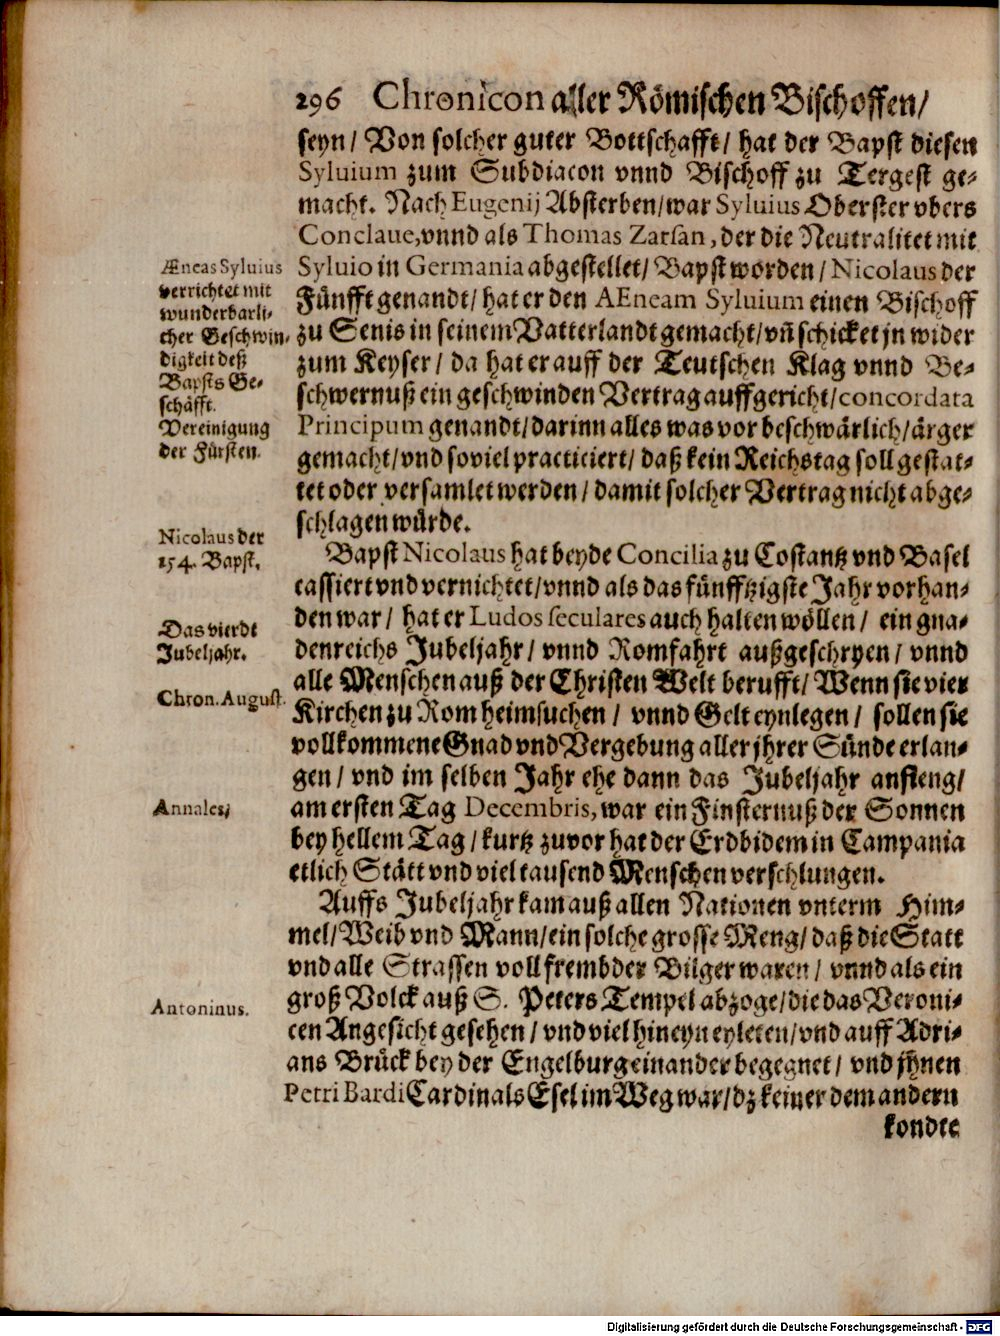 296 Chronicon aller Römischen Bischoffen/
seyn/ Von solcher guter Bottschafft/ hat der Bapst diesen
Syluium zum Subdiacon vnnd Bischoff zu Tergest ge-
macht. Nach Eugenij Absterben/war Syluius Oberster vbers
Conclaue, vnnd als Thomas Zarsan, der die Neutralitet mit
Syluio in Germania abgestellet/ Bapst worden/ Nicolaus der
Fünfft genandt/ hat er den AEneam Syluium einen Bischoff
zu Senis in seinem Vatterlandt gemacht/vñ schicket jn wider
zum Keyser/ da hat er auff der Teutschen Klag vnnd Be-
schwernuß ein geschwinden Vertrag auffgericht/concordata
Principum genandt/darinn alles was vor beschwärlich/ärger
gemacht/vnd soviel practiciert/ daß kein Reichstag soll gestat-
tet oder versamlet werden/ damit solcher Vertrag nicht abge-
schlagen würde.
Bapst Nicolaus hat beyde Concilia zu Costantz vnd Basel
cassiert vnd vernichtet/vnnd als das fünfftzigste Jahr vorhan-
den war/ hat er Ludos seculares auch halten wöllen/ ein gna-
denreichs Jubeljahr/ vnnd Romfahrt außgeschryen/ vnnd
alle Menschen auß der Christen Welt berufft/ Wenn sie vier
Kirchen zu Rom heimsuchen/ vnnd Gelt eynlegen/ sollen sie
vollkommene Gnad vnd Vergebung aller jhrer Sünde erlan-
gen/ vnd im selben Jahr ehe dann das Jubeljahr anfieng/
am ersten Tag Decembris, war ein Finsternuß der Sonnen
bey hellem Tag/ kurtz zuvor hat der Erdbidem in Campania
etlich Stätt vnd viel tausend Menschen verschlungen.
Auffs Jubeljahr kam auß allen Nationen vnterm Him-
mel/Weib vnd Mann/ein solche grosse Meng/ daß die Statt
vnd alle Strassen voll frembder Bilger waren/ vnnd als ein
groß Volck auß S. Peters Tempel abzoge/die das Veroni-
cen Angesicht gesehen/ vnd viel hineyn eyleten/vnd auff Adri-
ans Brück bey der Engelburg einander begegnet/ vnd jhnen
Petri Bardi Cardinals Esel im Weg war/dz keiner dem andern
kondte
Æneas Syluius
verrichtet mit
wunderbarli-
cher Geschwin-
digkeit deß
Bapsts Ge-
schäfft.
Vereinigung
der Fürsten.
Nicolaus der
154. Bapst.
Das vierdt
Jubeljahr.
Chron. August.
Annales;
Antoninus.
Digitalisierung gefördert durch die Deutsche Forschungsgemeinschaft - DFG